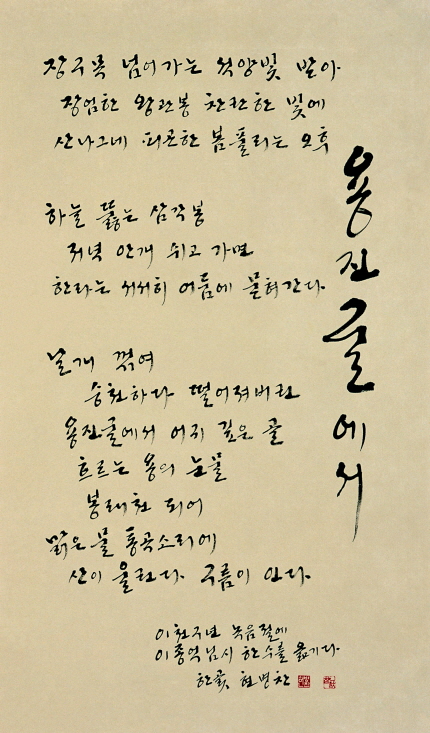 용진굴에서
장구목 넘어가는 석양빛 받아
장엄한 왕관봉 찬란한 빛에
산나그네 피곤한 몸 풀리는 오후
하늘 뚫는 삼각봉
저녁 안개 쉬고 가면
한라는 서서히 어둠에 묻혀간다
날개 꺾여
승천하다 떨어져버린
용진굴에서 어찌 깊은 골
흐르는 용의 눈물
봉래천 되어
맑은 물 통곡소리에
산이 울린다 구름이 인다
이천구년 녹음절에
이종억님 시 한수를 옮기다
한곬 현병찬